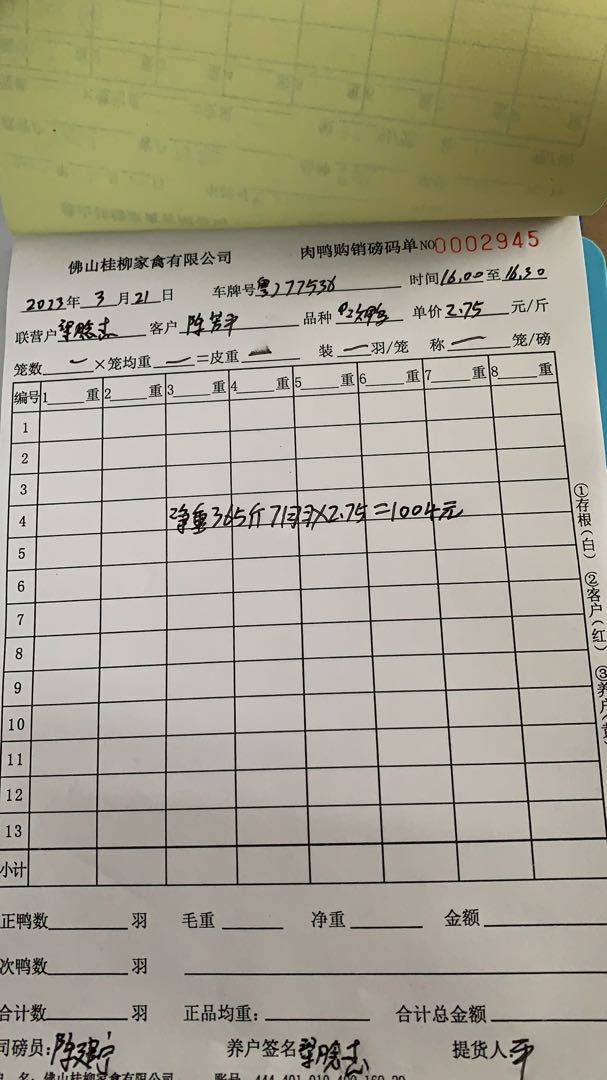 佛山桂柳家禽有限公司 肉鸭购销磅码单 NO0002945
2023年 3月21日 车牌号粤J77536 时间16.00至16.30
联营户 客户 陈 品种 次鸭 单价2.75元/斤
笼数 一 ×笼均重 一 =皮重 一 装 一 羽/笼 称 一 笼/磅
编号 1 重 2 重 3 重 4 重 5 重 6 重 7 重 8 重
1
2
3
4 净重365斤71羽×2.75=1004元
5
6
7
8
9
10
11
12
13
小计
①存根(白) ②客户(红) ③养户(黄)
正鸭数 羽 毛重 净重 金额
次鸭数 羽
合计数 羽 正品均重: 合计总金额
司磅员:陈建宁 养户签名 提货人平
名:佛山桂柳家禽有限公司